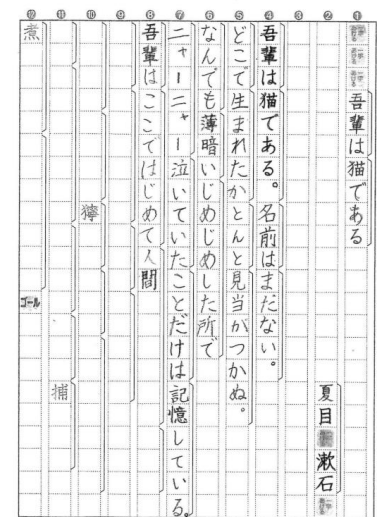 ①
一字あける
一字あける
一字あける
吾輩は猫である
②
夏目
漱石
一字あける
③
④
吾輩は猫である。名前はまだない。
⑤
どこで生まれたかとんと見当がつかぬ。
⑥
なんでも薄暗いじめじめした所で
⑦
ニャーニャー泣いていたことだけは記憶している。
⑧
吾輩はここではじめて人間
⑨
⑩
獰
⑪
捕
⑫
煮
ゴール